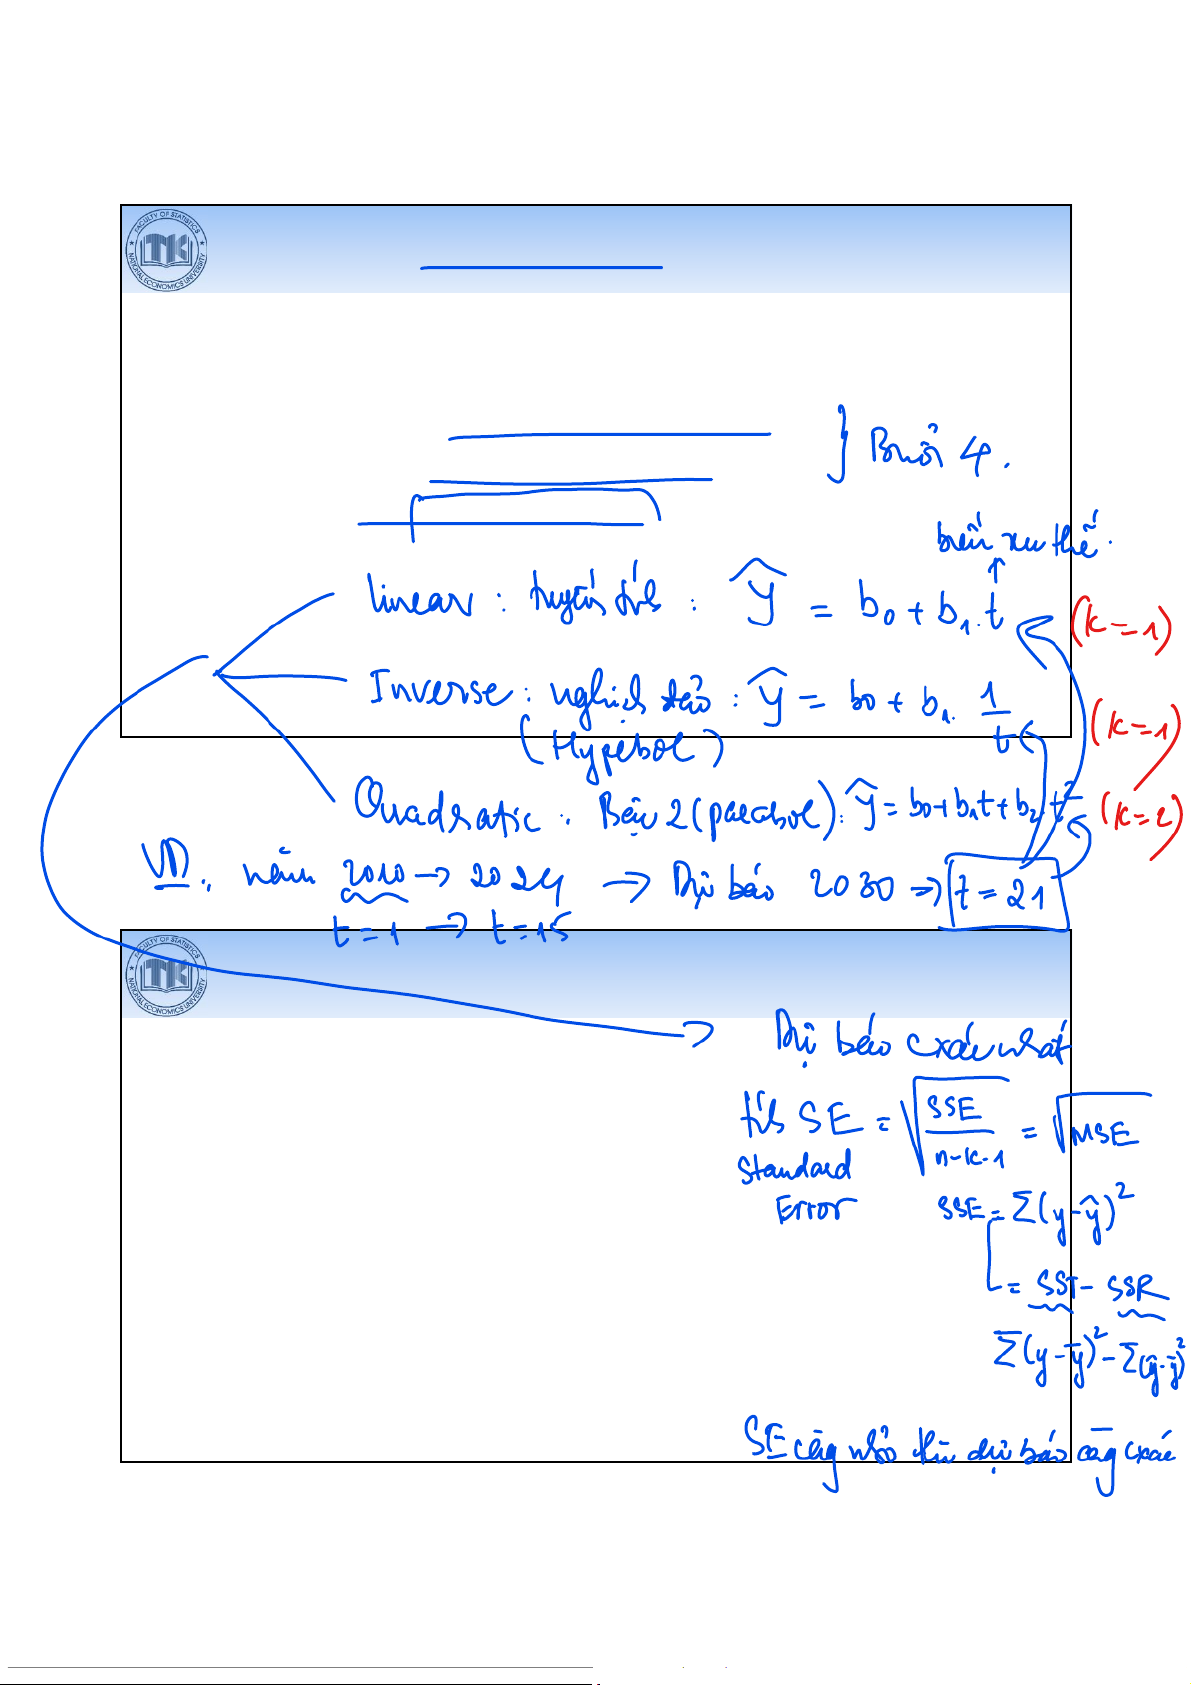 FACULTY OF STATISTICS
TK
NATIONAL ECONOMICS UNIVERSITY
} Buổi 4.
biến xu thế.
linear : tuyến tính : ŷ = b₀ + b₁.t (k=1)
Inverse : nghịch đảo : ŷ = b0 + b₁. 1/t (k=1)
(Hypebol)
Quadratic : Bậc 2 (parabol) : ŷ = b0+b₁t+b₂.t² (k=2)
VD: năm 2010 → 2024 → Dự báo 2030 ⇒ t = 21
t = 1 → t = 15
FACULTY OF STATISTICS
TK
NATIONAL ECONOMICS UNIVERSITY
Dự báo cxác nhất
tính SE = √(SSE/(n-k-1)) = √MSE
Standard
Error
SSE = Σ(y-ŷ)²
= SST - SSR
Σ(y-ȳ)² - Σ(ŷ-ȳ)²
SE càng nhỏ thì dự báo càng cxác